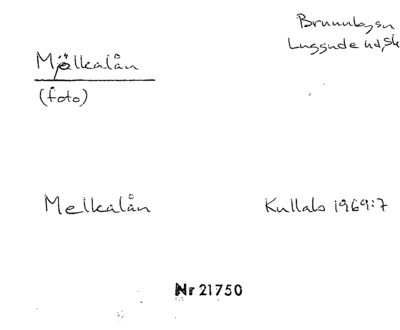 Brunnbysn
Luggude hd, Sk
Mjölkalån
(foto)
Melkalån
Kullabo 1969:7
Nr 21750